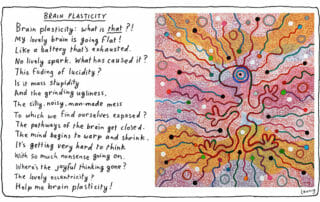 BRAIN PLASTICITY
Brain plasticity: what is that?!
My lovely brain is going flat!
Like a battery that's exhausted.
No lively spark. What has caused it?
This fading of lucidity?
Is it mass stupidity
And the grinding ugliness,
The silly, noisy, man-made mess
To which we find ourselves exposed?
The pathways of the brain get closed.
The mind begins to warp and shrink.
It's getting very hard to think
With so much nonsense going on.
Where's the joyful thinking gone?
The lovely eccentricity?
Help me brain plasticity!
Leunig